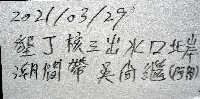 2021/03/29
墾丁核三出水口北岸
潮間帶 吳尚繼(阿翔)